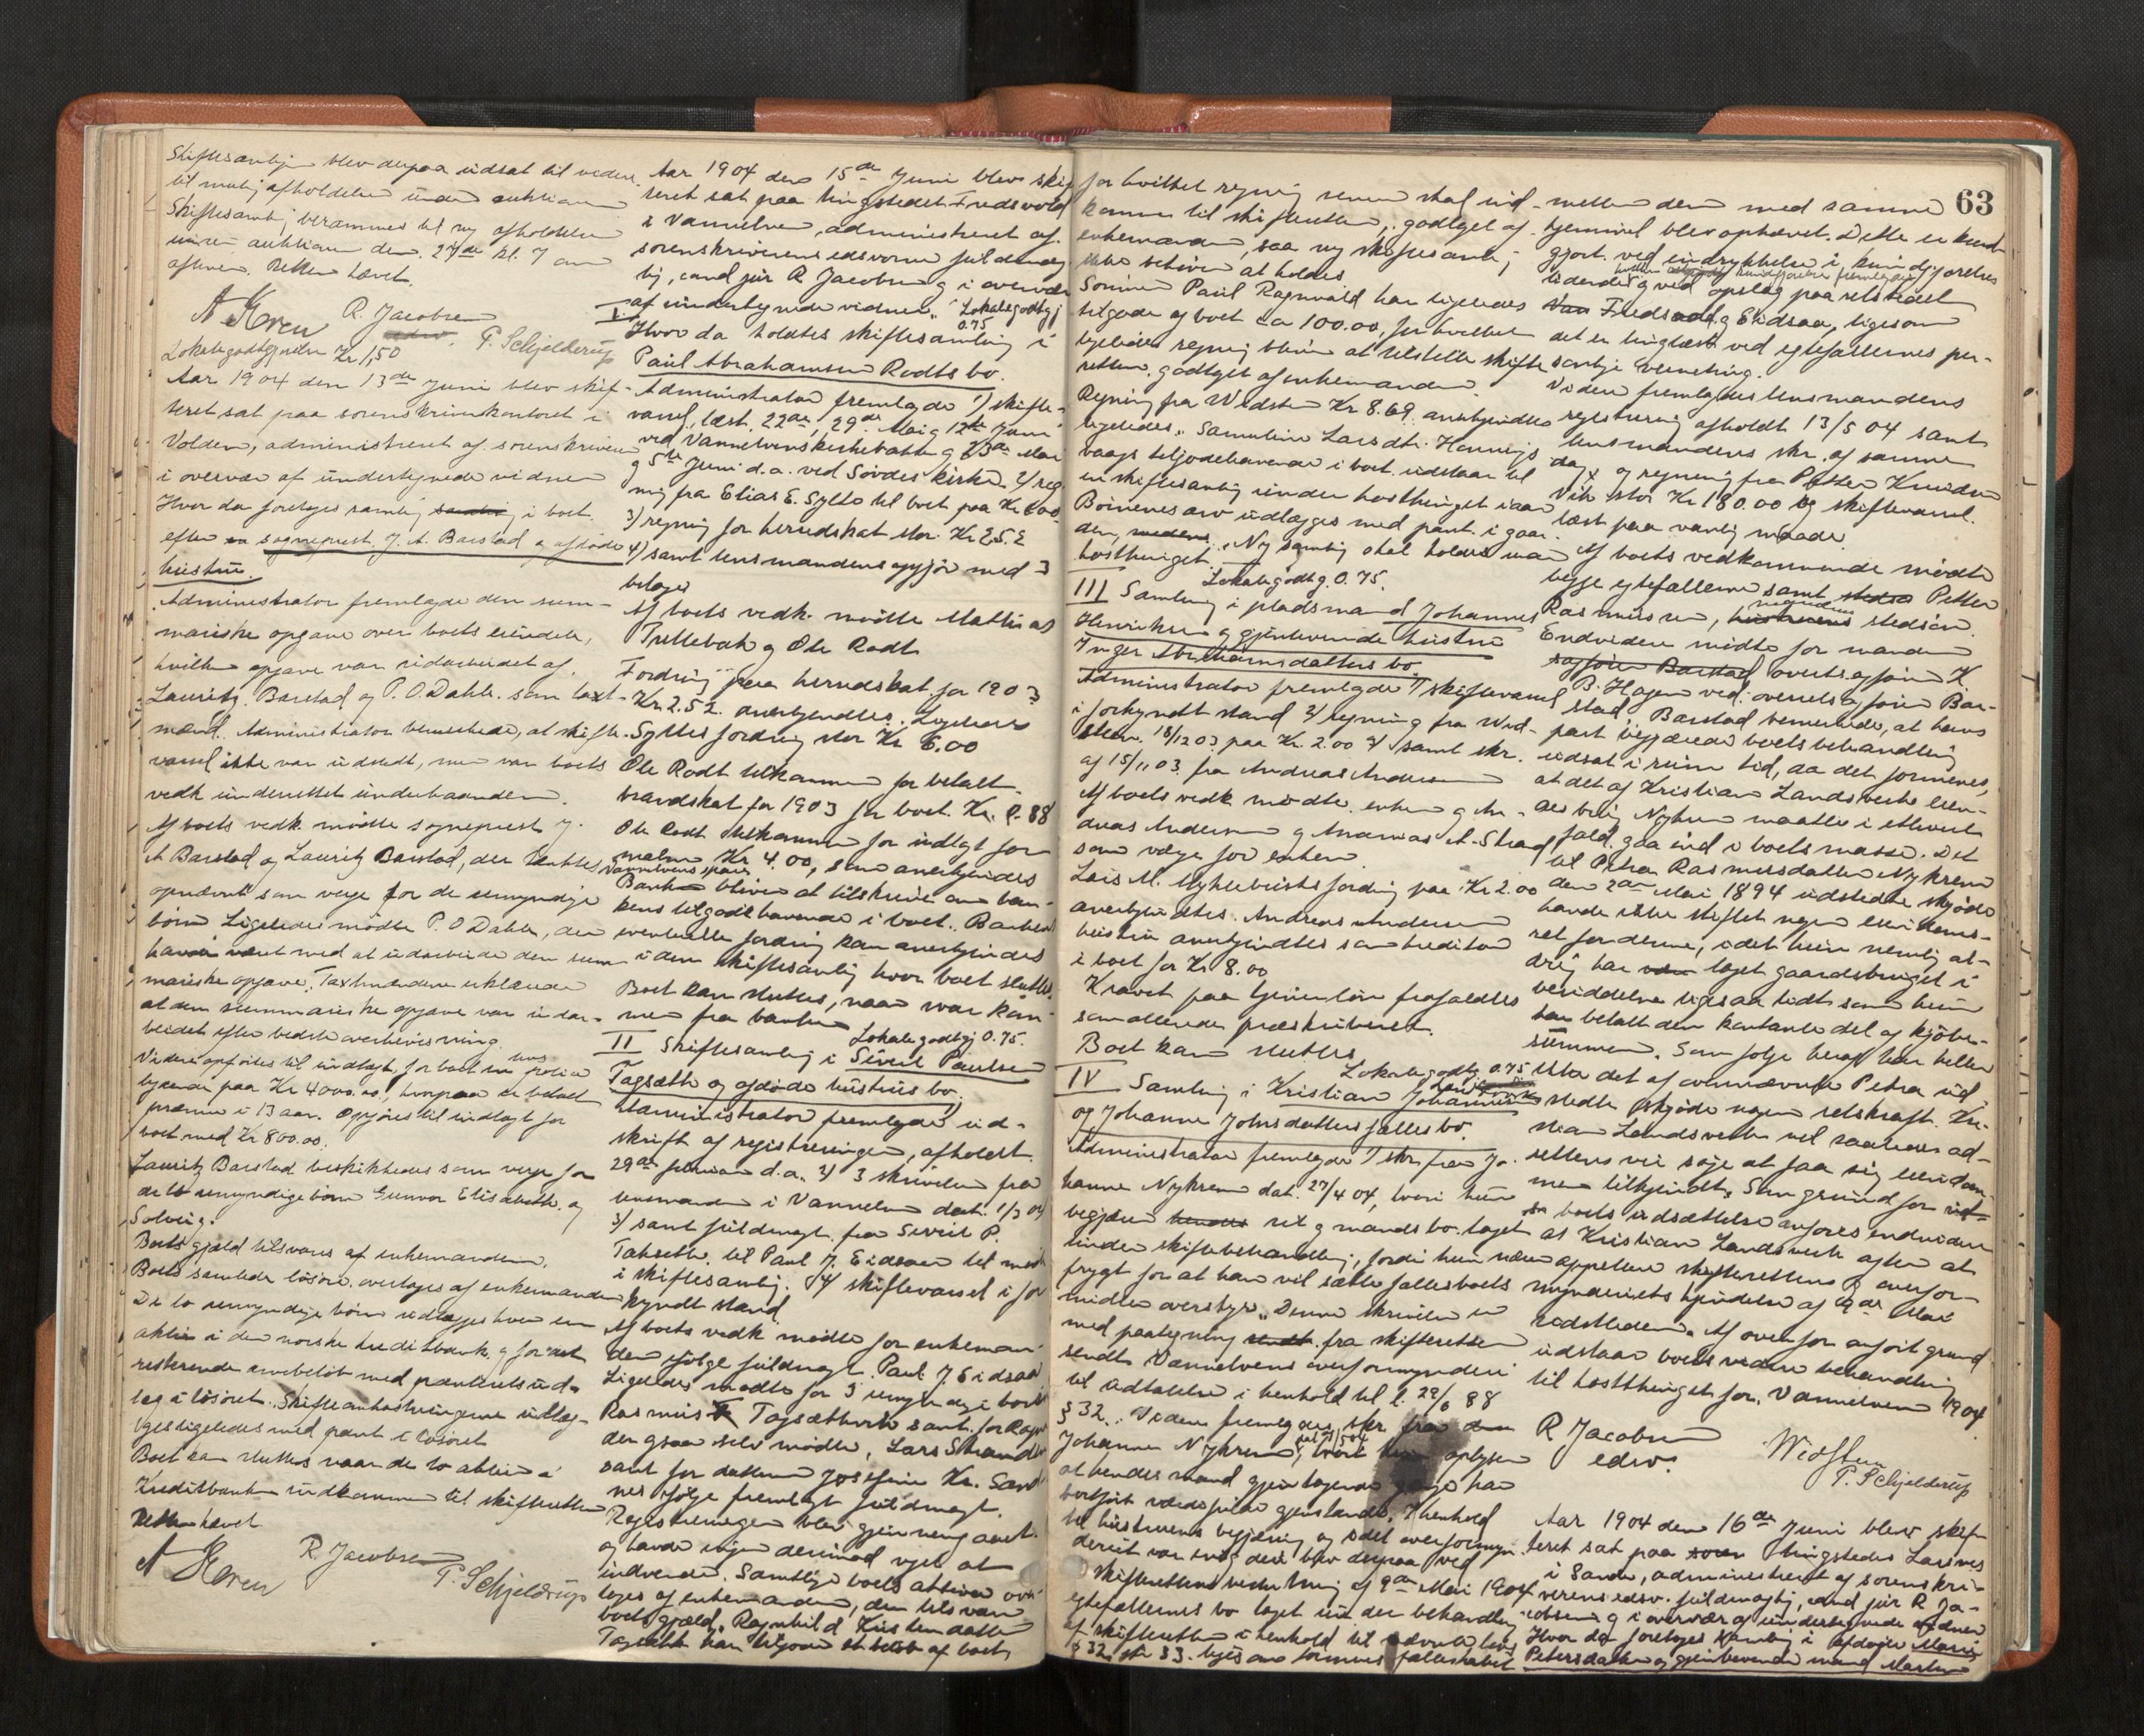 Skiftesamlgn blev derpaa udsat til videre
til mulig afholdelse under auktionen
Skiftesamlg berammes til ny afholdelse
under auktionen den 27de kl. 7 em
aften. Retten hævet.
R. Jacobsen
A Höven edsv. P. Schjelderup
Lokalegodtgjørelse Kr 1,50
Aar 1904 den 13de Juni blev skif-
teret sat paa sorenskriverkontoret i
Volden, administreret af sorenskriveren
i overvær af undertegnede vidner
Hvor da foretoges samling i boet
efter sognepræst J. A. Barstad og afdøde
hustru.
Administrator fremlagde den sum-
mariske opgave over boets eiendele,
hvilken opgave var udarbeidet af
Lauritz Barstad og P. O. Dahle som taxt-
mænd. Administrator bemærkede, at skifte-
varsel ikke var udstedt, men var boets
vedk. underrettet underhaanden.
Af boets vedk. mødte sognepræst J.
A Barstad og Lauritz Barstad, der
opnævnt som verge for de umyndige
børn Ligeledes mødte P. O Dahle, der
havde været med at udarbeide den sum-
mariske opgave. Taxtmændene erklærede
at den summariske opgave var udar-
beidet efter bedste overbevisning.
Videre anførtes til indtægt for boet en police
lydende paa Kr 4000.00, hvorpaa er betalt
præmie i 13 aar. Opføres til indtægt for
boet med Kr 800.00.
Lauritz Barstad beskikkedes som verge for
de to umyndige børn Gunvor Elisabeth og
Solveig.
Boets gjæld tilsvares af enkemanden.
Boets samlede løsøre overtages af enkemanden
De to umyndige børn udlægges hver en
aktie i den norske kreditbank og for det
resterende arvebeløb med panteret ud-
læg i løsøret. Skifteomkostningerne udlæg-
ges ligeledes med pant i løsøret
Boet kan sluttes naar de to aktier i
Kreditbanken indkommer til skifteretten
Retten hævet
R. Jacobsen
A Höven P. Schjelderup
Aar 1904 den 15de Juni blev skif-
teret sat paa thingstedet Fredsvold
i Vannelven, administreret af
sorenskriverens edsvorne fuldmæg-
tig, cand jur R Jacobsen og i overvær
af undertegnede vidner. Lokalegodtgj
I 0.75
Hvor da holdtes skiftesamling i
Paul Abrahamsen Rødts bo.
Administrator fremlagde 1) skifte-
varsel, læst 22de, 29de Mai og 12te Juni
ved Vannelvens kirkebakke og 23de Mai
og 5te Juni d.a. ved Sövdes kirke. 2) reg-
ning fra Elias E. Sylte til boet paa Kr 6.00
3) regning for herredskat stor Kr 2.52
4) samt lensmandens opgjør med 3
bilage
Af boets vedk. mødte Mathias
Trellebak og Ole Rødt
Fordring paa herredskat for 1903
Kr. 2.52 anerkjendtes. Ligeledes
Syltes fordring stor Kr 6.00
Ole Rødt tilkommer for betalt
brandskat for 1903 for boet Kr.
Ole Rødt tilkommer for indlagt for
Kr 4.00, som anerkjendes
Vannelvens spare
Bank bliver at tilskrive om ban-
kens tilgodehavende i boet. Bankens
eventuelle fordring kan anerkjendes
i den skiftesamlig hvor boet sluttes.
Boet kan sluttes, naar svar kom-
mer fra banken Lokalegodtgj 0.75.
II Skiftesamlig i Sivert Paulsen
Tagsæth og afdøde hustrus bo.
Administrator fremlagde 1) ud-
skrift af registreringen, afholdt
29de februar d.a. 2) 3 skrivelser fra
lensmanden i Vannelven dat. 1/3 04
3) samt fuldmagt fra Sivert P.
Taksæth til Paul J. Eidsaa til møde
i skiftesamlig. 4) skiftevarsel i for-
kyndt stand
Af boets vedk mødte for enkeman-
den ifølge fuldmagt Paul J Eidsaa
Ligeledes mødte for 3 umyndige i boet
Rasmus Tagsæth samt for Ragn
der ogsaa selv mødte, Lars Strand
samt for datteren Josefine Kr. Sand
nes ifølge fremlagt fuldmagt.
Registreringen blev gjennemgaaet
og havde ingen derimod noget at
indvende. Samtlige boets aktiver over-
tages af enkemanden, der tilsvarer
boets gjæld. Ragnhild Kristendatter
Tagsæth har tilgode af boet
63
for hvilket regning senere skal ind-
komme til skifteretten, godtgjort af
enkemanden, saa ny skiftesamlg
ikke behøver at holdes.
Sønnen Paul Ragnvald har ligeledes
tilgode af boet ca 100.00, for hvilket
ligeledes regning bliver at tilstille skifte
retten, godtgjort af enkemanden
Regning fra Widsten Kr 8.69 anerkjendtes
ligeledes. Samuline Larsdtr. Hennings
vaags tilgodehavende i boet udstaar til
en skiftesamlig under høstthinget i aar
Børnenes arv udlægges med pant i gaar-
den. Ny samlig skal holdes under
høstthinget. Lokalegodtg. 0.75.
III Samling i pladsmand Johannes
Henriksen og gjenlevende hustru
Inger Abrahamsdatters bo
Administrator fremlagde 1) skiftevarsel
i forkyndt stand 2) regning fra Wid-
sten 18/12 03 paa Kr. 2.00 3) samt skr.
af 15/11 03 fra Andreas Andersen
Af boets vedk mødte enken og An-
dreas Andersen og Andreas A. Strand
som verge for enken
Lars M. Myklebusts fordring paa Kr 2.00
anerkjendtes. Andreas Andersen
hustru anerkjendtes som kreditor
i boet for Kr 8.00
Kravet paa tjenerløn frafaldtes
som allerede præskriberet.
Boet kan sluttes
Lokalegodtg. 0.75
IV Samling i Kristian Johannessen Landsverk
og Johanne Johnsdatters fællesbo.
Administrator fremlagde 1) skr fra Jo-
hanne Nykrem dat. 27/4 04, hvori hun
begjærer sit og mands bo taget
under skiftebehandling, fordi hun nærer
frygt for at han vil sætte fællesboets
midler overstyr. Denne skrivelse er
med paategning fra skifteretten
sendt Vannelvens overformynderi
til udtalelse i henhold til l. 29/6 88
§ 32. Videre fremlagdes skr. fra
Johanne Nykrem, hvori hun oplyser
at hendes mand gjentagende gange har
bortført værdifulde gjenstande. I henhold
til hustruens begjæring og idet overformyn-
deriet var enig deri blev derpaa ved
skifterettens beslutning af 9de Mai 1904
egtefællernes bo taget under behandling
af skifteretten i henhold til nævnte lovs
§ 32 jfr 33. ligesom formues fællesskabet
mellem dem med samme
hjemmel blev ophævet. Dette er kund-
gjort ved indrykkelse i kundgjørelses
tidende og ved opslag paa retsstedet
Fredsvold og Eidsaa, ligesom
det er thinglæst ved egtefællernes per-
sonlige verneting.
Videre fremlagdes lensmandens
registrering afholdt 13/5 04 samt
lensmandens skr. af samme
dag og regning fra Petter Knudsen
Vik stor Kr 180.00 og skiftevarsel.
læst paa vanlig maade.
Af boets vedkommende mødte
begge egtefællerne samt Petter
Rasmussen, stedsøn.
Endvidere mødte for manden
sagfører Barstad overretssagfører K.
B. Hagen ved overretssagfører Bar-
stad. Barstad bemærkede, at hans
part begjærede boets behandling
udsat i rum tid, da det formenes,
at det af Kristian Landsverks eien-
des brug Nykrem maatte i ethvert
fald gaa ind i boets masse. Det
til Petra Rasmusdatter Nykrem
den 2den Mai 1894 udstedte skjøde
havde ikke stiftet nogen eiendoms-
ret for denne, idet hun nemlig al-
drig har taget gaardsbruget i
besiddelse ligesaa lidt som hun
har betalt den kontante del af kjøbe-
summen. Som følge heraf har heller
ikke det af ovennævnte Petra ud-
stedte skjøde nogen retskraft. Kri-
stian Landsverk vil saaledes ad
rettens vei søge at faa sig eiendom-
men tilkjendt. Som grund for
boets udsættelse anføres endvidere
at Kristian Landsverk agter at
appellere skifterettens & overfor-
mynderiets kjendelse af 9de Mai
sidstleden. Af ovenfor anført grund
udstaar boets videre behandling
til høstthinget for Vannelven 1904.
R Jacobsen
edsv. Widsten
P. Schjelderup
Aar 1904 den 16de Juni blev skif-
teret sat paa thingstedet Larsnes
i Sande, administreret af sorenskri-
verens edsv. fuldmægtig, cand jur R Ja-
cobsen og i overvær af undertegnede vidner
Hvor da foretoges samling i afdøde Marie
Petersdatter og gjenlevende mand Martin